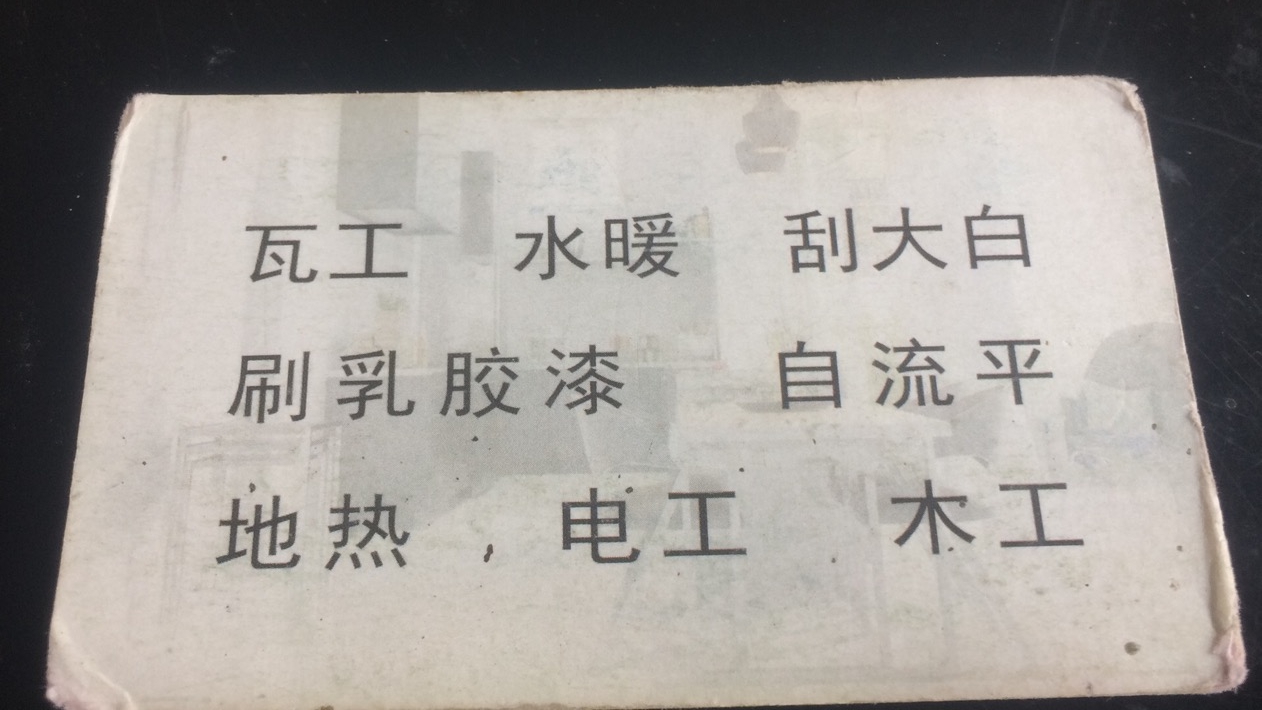 瓦工 水暖 刮大白
刷乳胶漆 自流平
地热 电工 木工